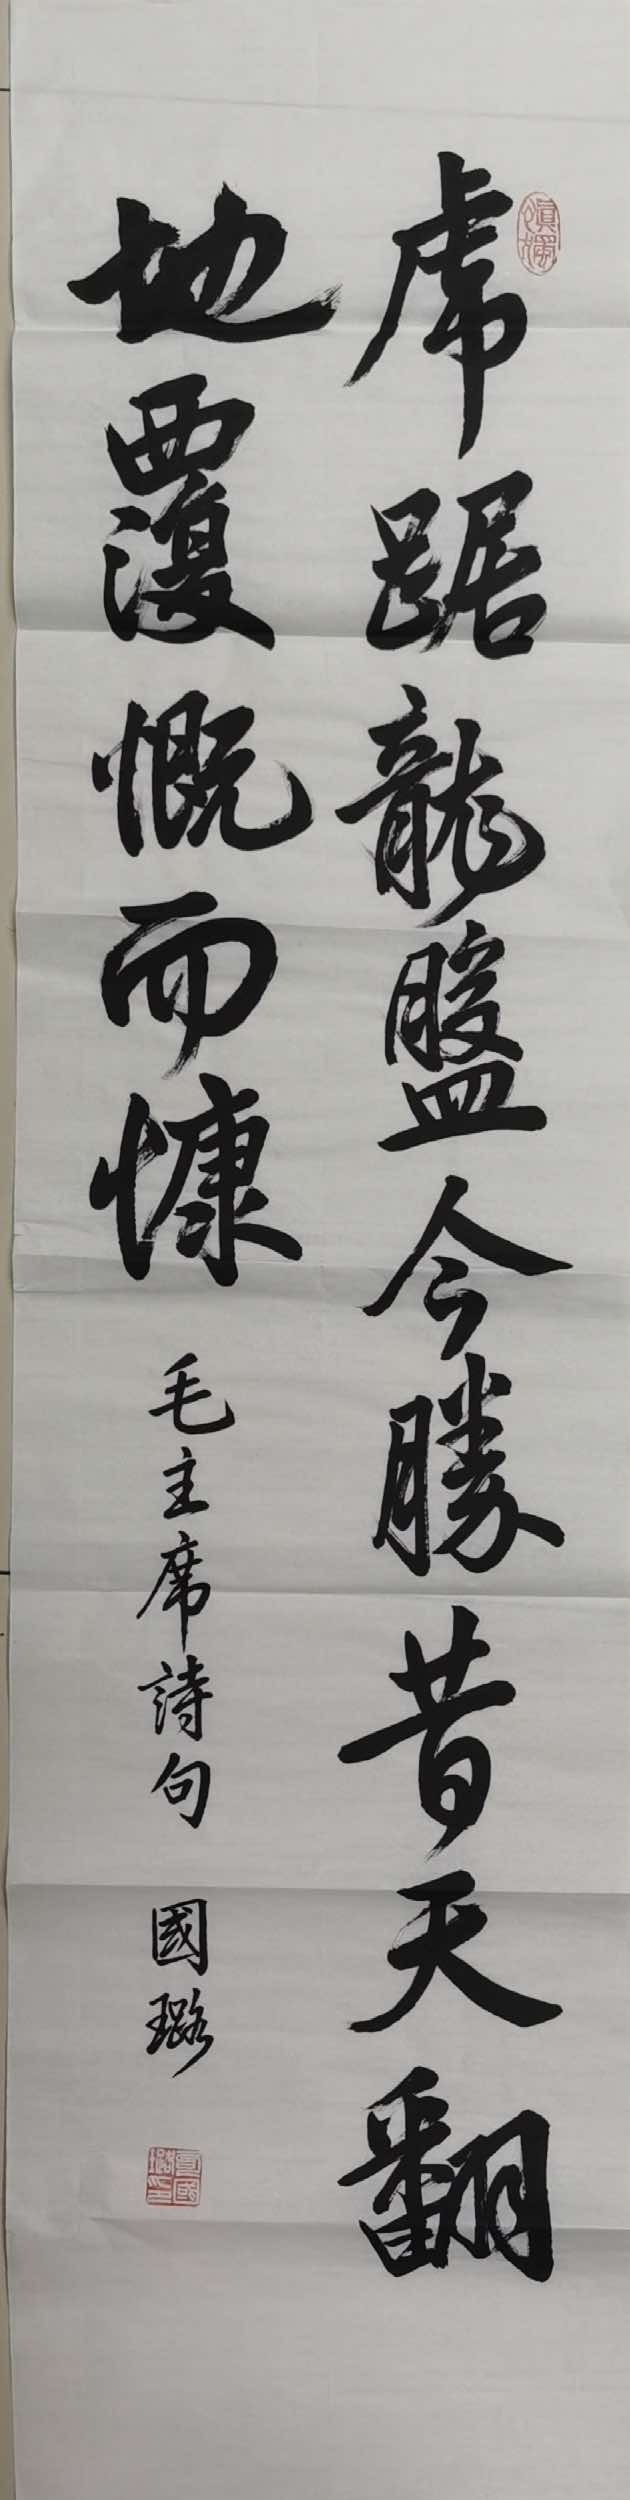 虎踞龍盤今勝昔天翻
地覆慨而慷
毛主席詩句 國璐